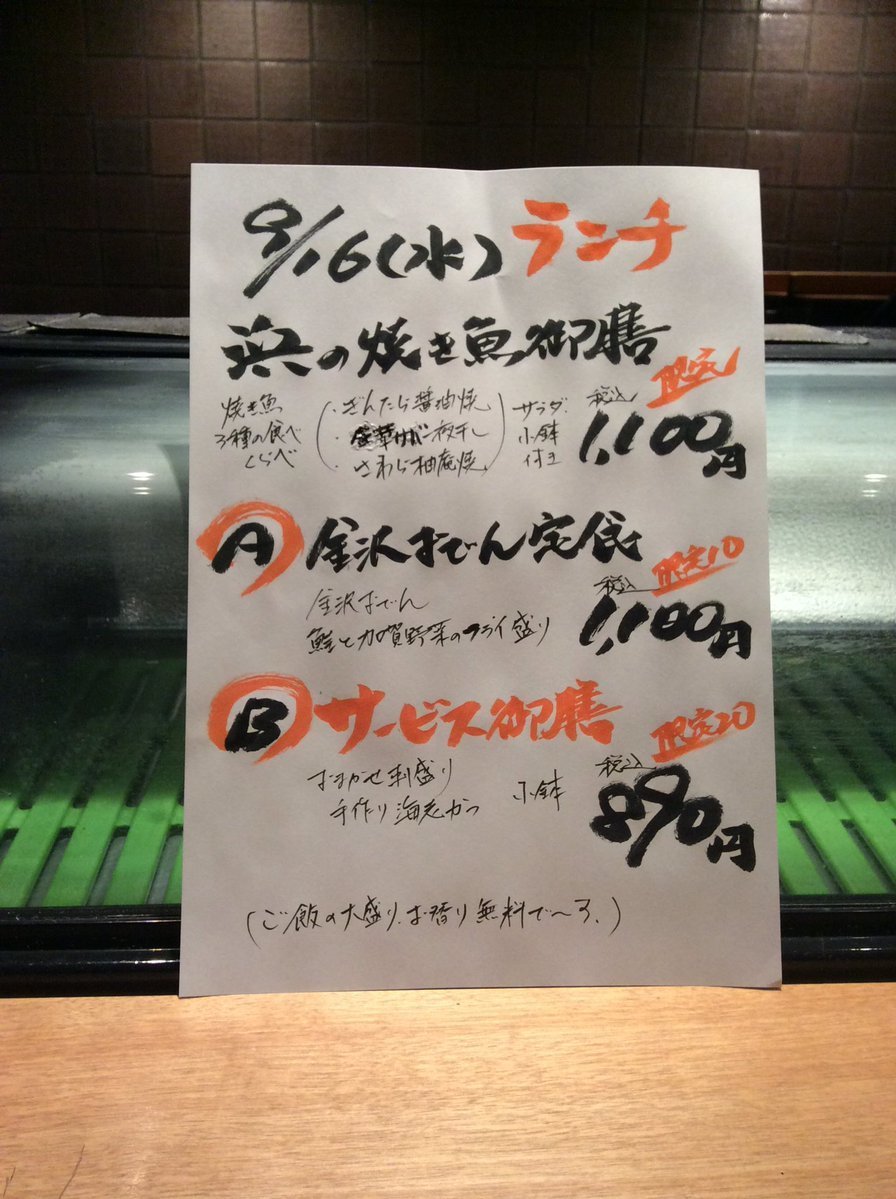 9/16(水)ランチ
浜の焼き魚御膳
限定
焼き魚
3種の食べ
くらべ
・ぎんだら醤油焼
・金華サバ一夜干し
・さわら柚庵焼
サラダ
小鉢
付き
税込
1,100円
A 金沢おでん定食
限定10
金沢おでん
鮭と加賀野菜のフライ盛り
税込
1,100円
B サービス御膳
限定20
おまかせ刺盛り
手作り海老かつ
小鉢
税込
890円
(ご飯の大盛り、お替り無料で〜す。)